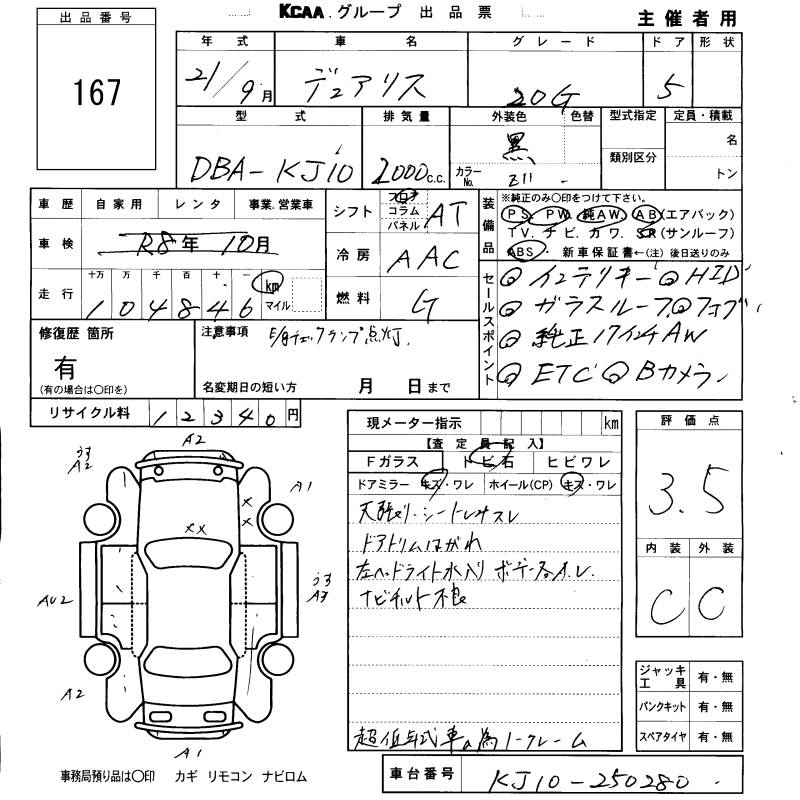 KCAA.グループ 出品票
主催者用
出品番号
167
年式 車名 グレード ドア 形状
21/9月 デュアリス 20G 5
型式 排気量 外装色 色替 型式指定 定員・積載
DBA-KJ10 2000c.c. 黒 カラーNo. Z11 - 類別区分 名 トン
車歴 自家用 レンタ 事業.営業車
車検 R8年10月
走行 十万 万 千 百 十 一 km マイル
104846
シフト フロア コラム パネル AT
冷房 AAC
燃料 G
装備品 ※純正のみ〇印をつけて下さい。
PS. PW. 純AW. AB(エアバック)
TV. ナビ. カワ. SR(サンルーフ)
ABS. 新車保証書←(注)後日送りのみ
セールスポイント
◎インテリキー ◎HID
◎ガラスルーフ ◎フォグ
◎純正17インチAW
◎ETC ◎Bカメラ
修復歴 箇所
有
(有の場合は〇印を)
注意事項 E/gチェックランプ点灯
名変期日の短い方 月 日まで
リサイクル料 12340円
現メーター指示 km
【査定員記入】
Fガラス トビ石 ヒビワレ
ドアミラー キズ・ワレ ホイール(CP) キズ・ワレ
天張り・シートヨゴレスレ
ドアトリムはがれ
左ヘッドライト水入り ボデー各A.U.
ナビチルト不良
超低年式車の為ノークレーム
評価点
3.5
内装 外装
C C
ジャッキ工具 有・無
パンクキット 有・無
スペアタイヤ 有・無
A2
うす A2
A1
××
×
×
AU2
うす A3
A2
A1
事務局預り品は〇印 カギ リモコン ナビロム
車台番号 KJ10-250280